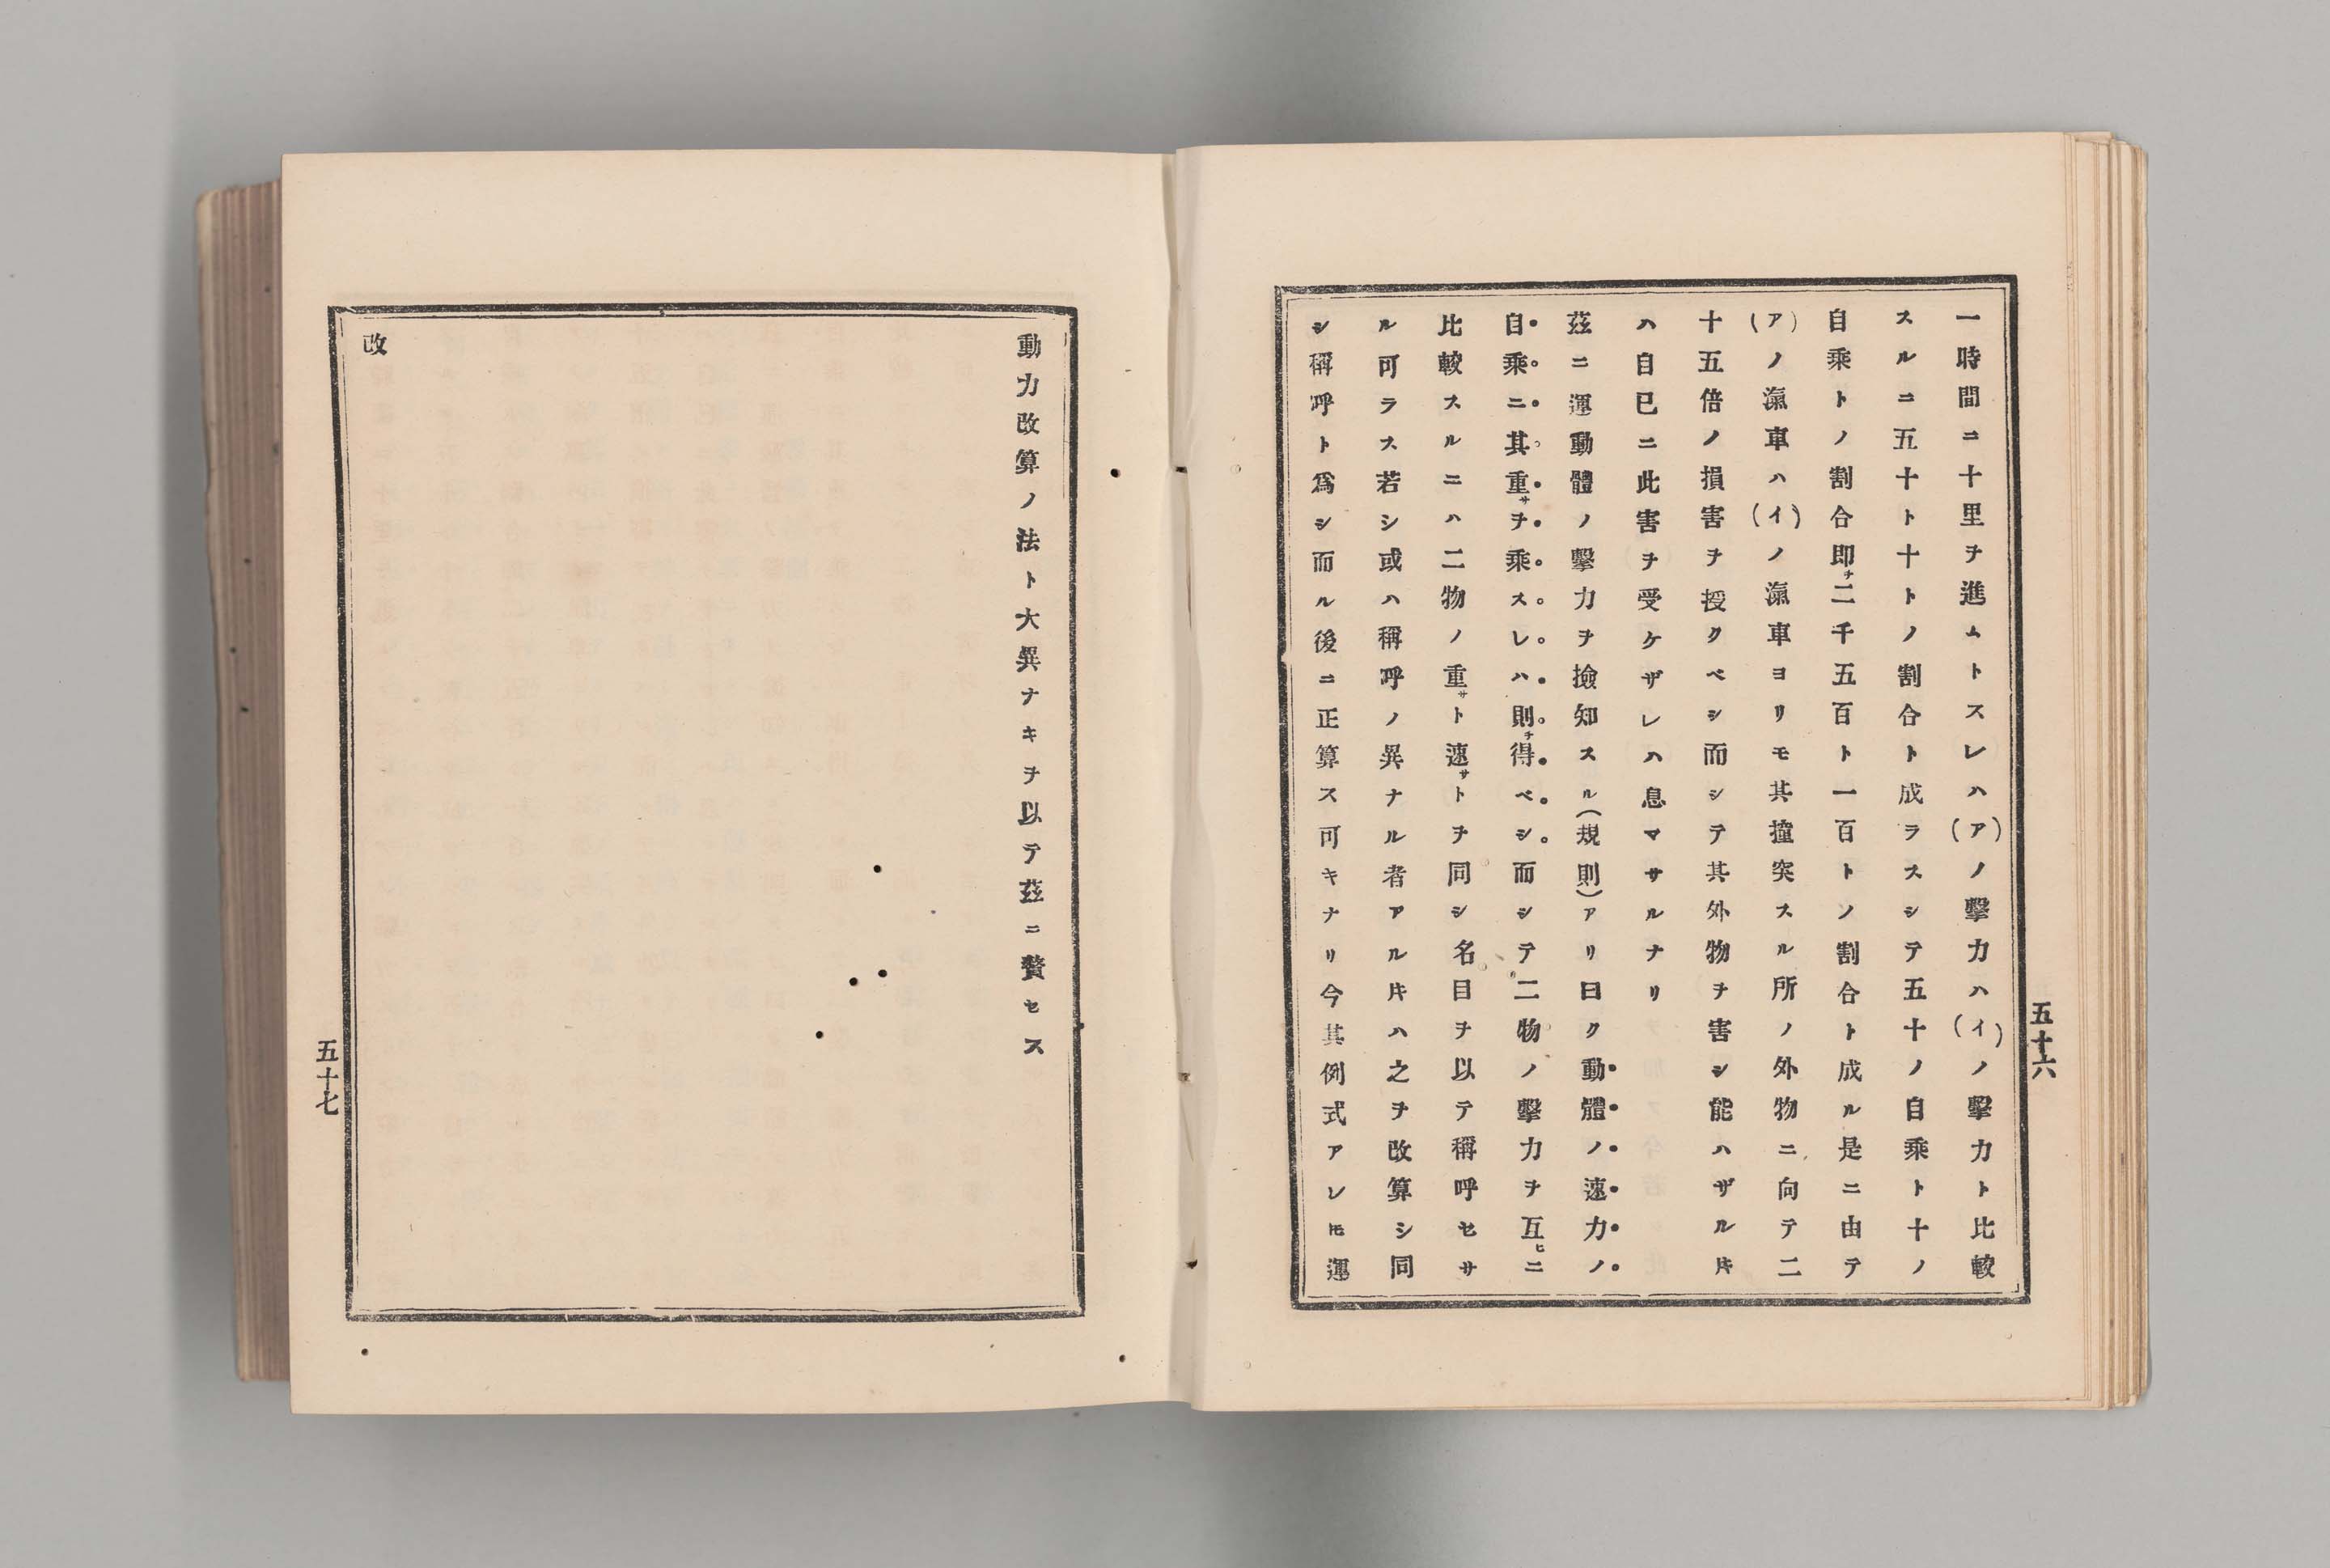 一時間ニ十里ヲ進ムトスレハ(ア)ノ擊力ハ(イ)ノ擊力ト比較
スルニ五十ト十トノ割合ト成ラスシテ五十ノ自乘ト十ノ
自乘トノ割合即チ二千五百ト一百トノ割合ト成ル是ニ由テ
(ア)ノ滊車ハ(イ)ノ滊車ヨリモ其撞突スル所ノ外物ニ向テ二
十五倍ノ損害ヲ授クベシ而シテ其外物ヲ害シ能ハザルㇳキ
ハ自已ニ此害ヲ受ケザレハ息マサルナリ
茲ニ運動體ノ擊力ヲ撿知スル(規則)アリ曰ク動體ノ速力ノ
自乘ニ其重サヲ乘スレハ則チ得ベシ而シテ二物ノ擊力ヲ互ヒニ
比較スルニハ二物ノ重サト速サトヲ同シ名目ヲ以テ稱呼セサ
ル可ラス若シ或ハ稱呼ノ異ナル者アルㇳキハ之ヲ改算シ同
シ稱呼ト爲シ而ル後ニ正算ス可キナリ今其例式アレㇳモ運
五十六
動力改算ノ法ト大異ナキヲ以テ茲ニ贅セス
改
五十七